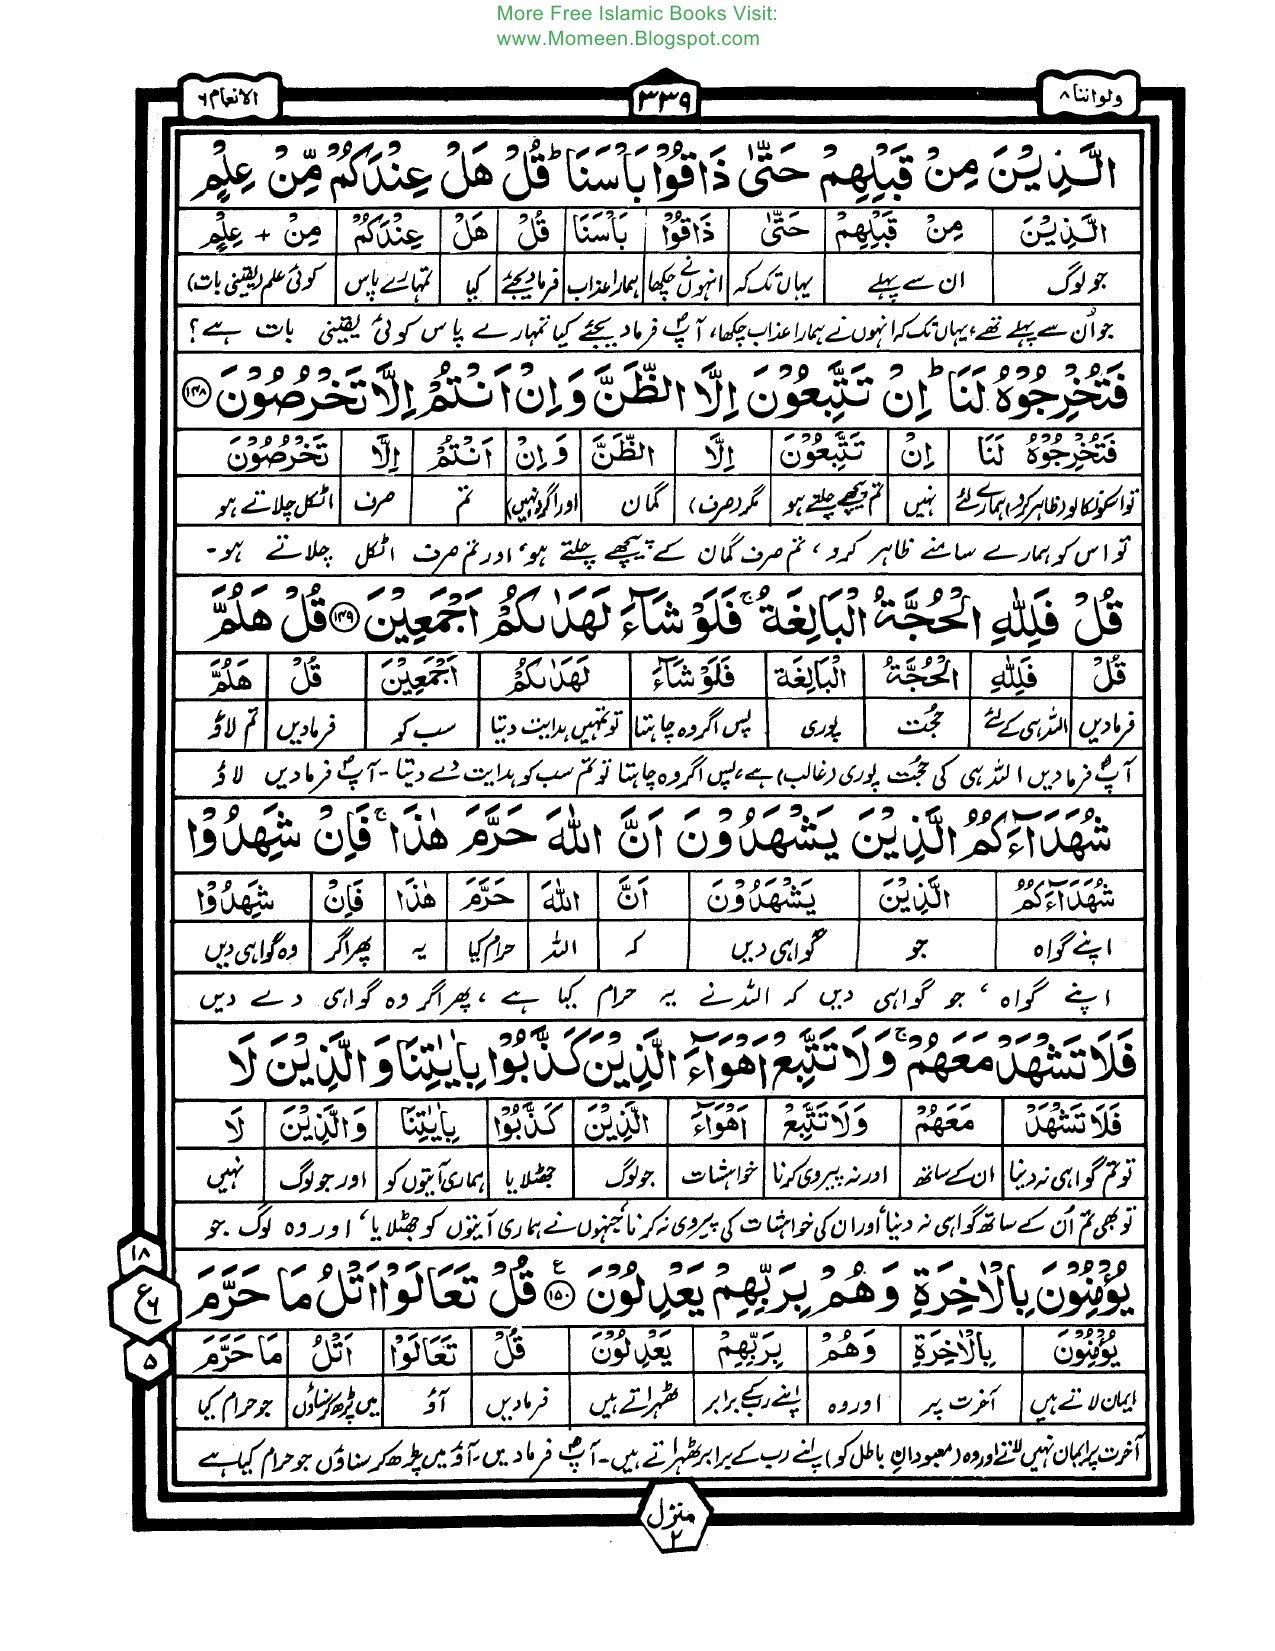 More Free Islamic Books Visit:
www.Momeen.Blogspot.com
ولواننا ۸
۳۳۹
الانعام ۶
الَّذِيْنَ مِنْ قَبْلِهِمْ حَتّٰى ذَاقُوْا بَاْسَنَا ؕ قُلْ هَلْ عِنْدَكُمْ مِّنْ عِلْمٍ
الَّذِيْنَ مِنْ قَبْلِهِمْ حَتّٰى ذَاقُوْا بَاْسَنَا قُلْ هَلْ عِنْدَكُمْ مِنْ + عِلْمٍ
جو لوگ ان سے پہلے یہاں تک کہ انہوں نے چکھا ہمارا عذاب فرما دیجئے کیا تمہارے پاس کوئی علم (یقینی بات)
جو اُن سے پہلے تھے، یہاں تک کہ انہوں نے ہمارا عذاب چکھا، آپؐ فرما دیجئے کیا تمہارے پاس کوئی یقینی بات ہے؟
فَتُخْرِجُوْهُ لَنَا ؕ اِنْ تَتَّبِعُوْنَ اِلَّا الظَّنَّ وَاِنْ اَنْتُمْ اِلَّا تَخْرُصُوْنَ ۱۴۸
فَتُخْرِجُوْهُ لَنَا اِنْ تَتَّبِعُوْنَ اِلَّا الظَّنَّ وَاِنْ اَنْتُمْ اِلَّا تَخْرُصُوْنَ
تو اسکو نکالو (ظاہر کرو) ہمارے لئے نہیں تم پیچھے چلتے ہو مگر (صرف) گمان اور اگر (نہیں) تم صرف اٹکل چلاتے ہو
تو اس کو ہمارے سامنے ظاہر کرو، تم صرف گمان کے پیچھے چلتے ہو، اور تم صرف اٹکل چلاتے ہو۔
قُلْ فَلِلّٰهِ الْحُجَّةُ الْبَالِغَةُ ۚ فَلَوْ شَآءَ لَهَدٰىكُمْ اَجْمَعِيْنَ ۱۴۹ قُلْ هَلُمَّ
قُلْ فَلِلّٰهِ الْحُجَّةُ الْبَالِغَةُ فَلَوْ شَآءَ لَهَدٰىكُمْ اَجْمَعِيْنَ قُلْ هَلُمَّ
فرمادیں اللہ ہی کے لئے حجت پوری پس اگر وہ چاہتا تو تمہیں ہدایت دیتا سب کو فرمادیں تم لاؤ
آپؐ فرمادیں اللہ ہی کی حجت پوری (غالب) ہے، پس اگر وہ چاہتا تو تم سب کو ہدایت دے دیتا۔ آپؐ فرمادیں لاؤ
شُهَدَآءَكُمُ الَّذِيْنَ يَشْهَدُوْنَ اَنَّ اللّٰهَ حَرَّمَ هٰذَا ۚ فَاِنْ شَهِدُوْا
شُهَدَآءَكُمُ الَّذِيْنَ يَشْهَدُوْنَ اَنَّ اللّٰهَ حَرَّمَ هٰذَا فَاِنْ شَهِدُوْا
اپنے گواہ جو گواہی دیں کہ اللہ حرام کیا یہ پھر اگر وہ گواہی دیں
اپنے گواہ، جو گواہی دیں کہ اللہ نے یہ حرام کیا ہے، پھر اگر وہ گواہی دے دیں
فَلَا تَشْهَدْ مَعَهُمْ ۚ وَلَا تَتَّبِعْ اَهْوَآءَ الَّذِيْنَ كَذَّبُوْا بِاٰيٰتِنَا وَالَّذِيْنَ لَا
فَلَا تَشْهَدْ مَعَهُمْ وَلَا تَتَّبِعْ اَهْوَآءَ الَّذِيْنَ كَذَّبُوْا بِاٰيٰتِنَا وَالَّذِيْنَ لَا
تو تم گواہی نہ دینا ان کے ساتھ اور نہ پیروی کرنا خواہشات جو لوگ جھٹلایا ہماری آیتوں کو اور جو لوگ نہیں
تو بھی تم اُن کے ساتھ گواہی نہ دینا اور ان کی خواہشات کی پیروی نہ کرنا جنہوں نے ہماری آیتوں کو جھٹلایا، اور وہ لوگ جو
يُؤْمِنُوْنَ بِالْاٰخِرَةِ وَهُمْ بِرَبِّهِمْ يَعْدِلُوْنَ ع ۱۵۰ قُلْ تَعَالَوْا اَتْلُ مَا حَرَّمَ
۱۸
ع ۶
۵
يُؤْمِنُوْنَ بِالْاٰخِرَةِ وَهُمْ بِرَبِّهِمْ يَعْدِلُوْنَ قُلْ تَعَالَوْا اَتْلُ مَا حَرَّمَ
ایمان لاتے ہیں آخرت پر اور وہ اپنے رب کے برابر ٹھہراتے ہیں فرمادیں آؤ میں پڑھ کر سناؤں جو حرام کیا
آخرت پر ایمان نہیں لاتے اور وہ (معبودانِ باطل کو) اپنے رب کے برابر ٹھہراتے ہیں۔ آپؐ فرمادیں۔ آؤ میں پڑھ کر سناؤں جو حرام کیا ہے
منزل ۲